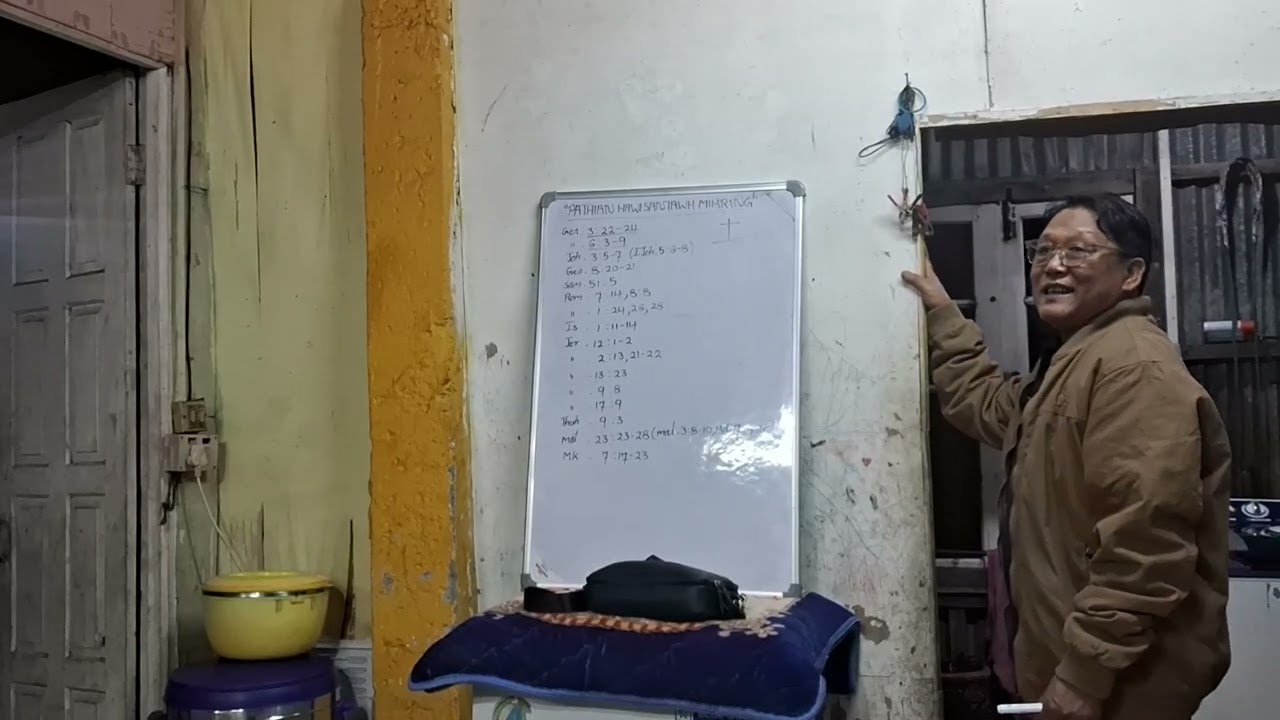 "PATHIAN HAWISANTAWH MIHRING"
Gen. 3:22-24
" . 6:3-9
Joh. 3:5-7 (I.Joh.5:6-8)
Gen. 8:20-21
Sam. 51:5
Rom 7:14, 8:8
" . 1:24,26,28
Is . 1:11-14
Jer . 12:1-2
" 2:13,21-22
" . 13:23
" 9:8
" . 17:9
Thuh 9:3
Mat . 23:23-28
MK . 7:17-23